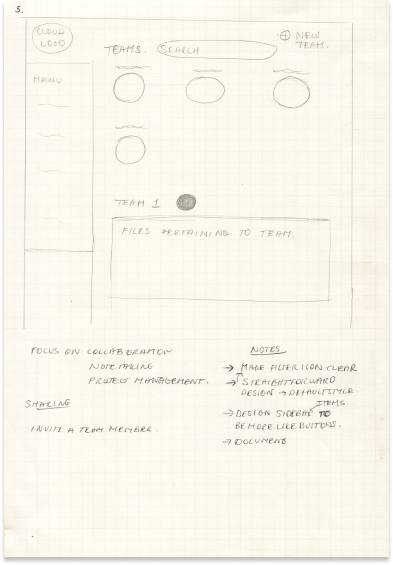 5.
CLOUD
LOGO
TEAMS.
SEARCH
NEW
TEAM.
MENU
TEAM 1
FILES PERTAINING TO TEAM.
FOCUS ON COLLABORATION
NOTE TAKING
PROJECT MANAGEMENT.
SHARING
INVITE A TEAM MEMBER.
NOTES
→ MAKE FILTER ICON CLEAR
→ STRAIGHTFORWARD
DESIGN → DEFAULT STYLE
ITEMS.
→ DESIGN SIDEBAR TO
BE MORE LIKE BUTTONS.
→ DOCUMENT